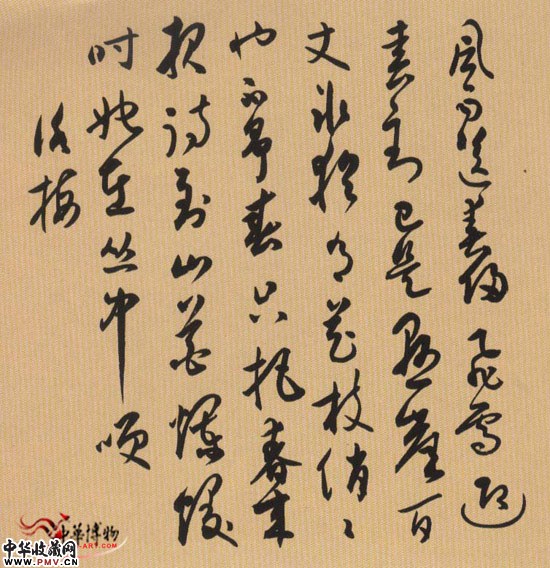 风雨送春归飞雪迎
春到已是悬崖百
丈冰犹有花枝俏〻
也不争春只把春来
报待到山花烂漫
时她在丛中笑
咏梅
中华博物
中华收藏网
WWW.PMV.CN